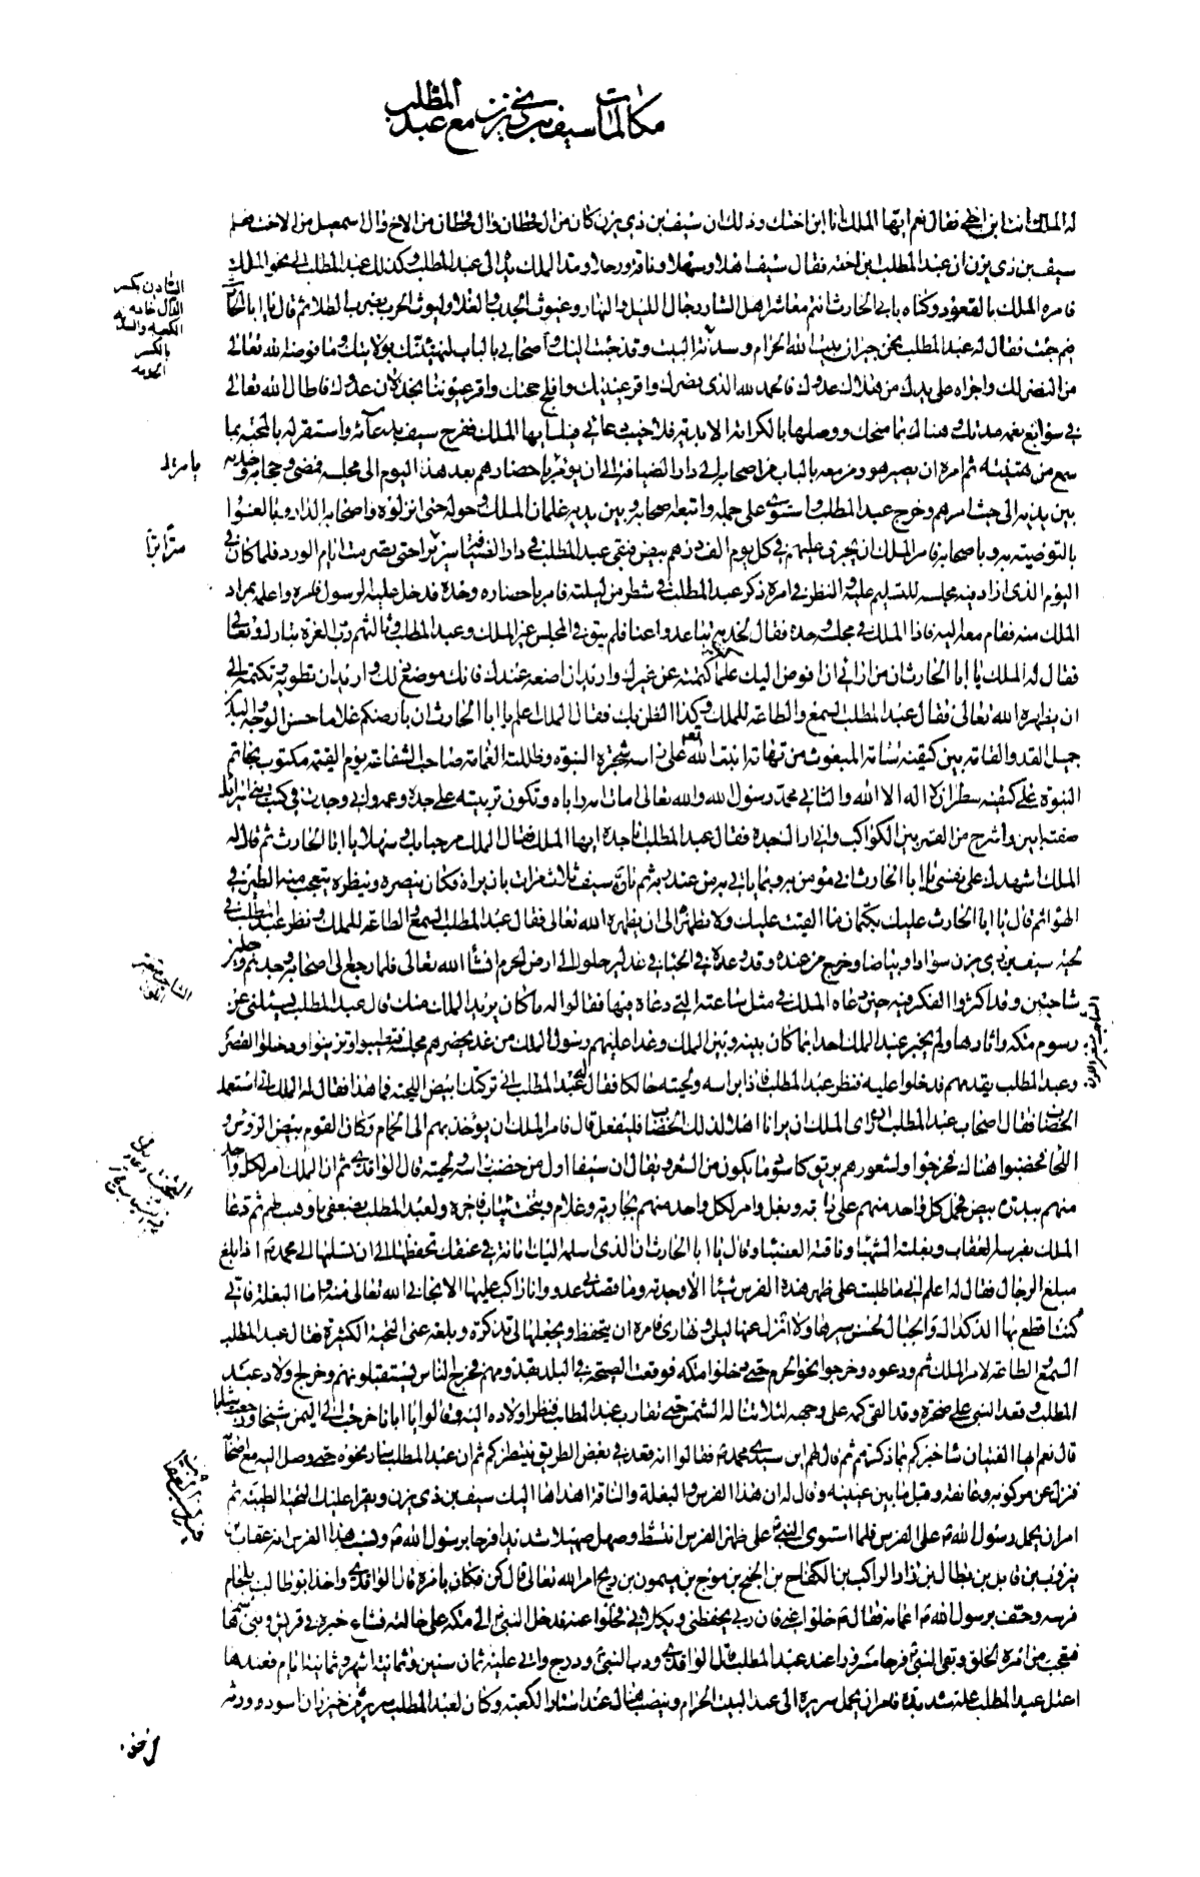 مكالمات سيف بن ذي يزن مع عبد المطلب
له الملك انت ابن اختي فقال نعم ايها الملك انا ابن اختك وذلك ان سيف بن ذي يزن كان من ال قحطان وال قحطان من الاخ وال اسمعيل من الاخت فعلم
سيف بن ذي يزن ان عبد المطلب بن اخته فقال سيف اهلا وسهلا وناقة ورحلا ومد الملك يده الى عبد المطلب وكذلك عبد المطلب الى نحو الملك
فامره الملك بالقعود وكناه بابي الحارث انتم معاشر اهل الشاد رجال الليل والنهار وغيوث الجدب والغلا وليوث الحرب بضرب الطلا ثم قال يا ابا الحارث
فيم جئت فقال له عبد المطلب نحن جيران بيت الله الحرام وسدنة البيت وقد جئت اليك واصحابي بالباب لنهنئك بولايتك وما فوضه الله تعالى
من النصر لك واجراه على يديك من هلاك عدوك فالحمد لله الذي نصرك واقر عينيك وافلج حجتك واقر عيوننا بخذلان عدوك فاطال الله تعالى
في سوابغ نعمه مدتك وهناك بما منحك ووصلها بالكرامة الابدية فلا خيب دعائي فيك ايها الملك ففرح سيف بدعائه واستقر له بالمحبة بما
سمع من تهنيته ثم امره ان يصير هو ومن معه بالباب من اصحابه الى دار الضيافة الى ان يؤمر باحضارهم بعد هذا اليوم الى مجلسه فمضى وحجابه وخدمه
بين يديه الى حيث امرهم وخرج عبد المطلب واستوى على جمله واتبعه صحابه وبين يديه غلمان الملك وحوله حتى انزلوه واصحابه الدار وبالغوا
بالتوصية به وباصحابه فامر الملك ان يجرى عليهم في كل يوم الف درهم بيض فبقى عبد المطلب في دار الضيافة حتى تصرمت ايام الورد فلما كان في
اليوم الذي اراد فيه مجلسه للتسليم عليه والنظر في امره ذكر عبد المطلب في شطر من ليلته فامر باحضاره وحده فدخل عليه الرسول فامره واعلمه بمراد
الملك منه فقام معه اليه فاذا الملك في مجلسه وحده فقال لخدمه تباعدوا عنا فلم يبق في المجلس غير الملك وعبد المطلب وثالثهم رب العزة تبارك وتعالى
فقال له الملك يا ابا الحارث ان من ارائي ان افوض اليك علما كتمته عن غيرك واريد ان اضعه عندك فانك موضع ذلك واريد ان تطويه وتكتمه الى
ان يظهره الله تعالى فقال عبد المطلب السمع والطاعة للملك وكذا الظن بك فقال الملك اعلم يا ابا الحارث ان بارضكم غلاما حسن الوجه والبدن
جميل القد والقامة بين كتفيه شامة المبعوث من تهامة انبت الله تعالى على راسه شجرة النبوة وظللته الغمامة صاحب الشفاعة يوم القيمة مكتوب بخاتم
النبوة على كتفيه سطران لا اله الا الله والثاني محمد رسول الله والله تعالى امات امه واباه وتكون تربيته على جده وعمه واني وجدت في كتب بني اسرائيل
صفته ابين واشرح من القمر بين الكواكب واني اراك جده فقال عبد المطلب انا جده ايها الملك فقال الملك مرحبا بك وسهلا يا ابا الحارث ثم قال له
الملك اشهدك على نفسي يا ابا الحارث اني مؤمن به وبما ياتي به من عند ربه ثم تاوه سيف ثلاث مرات بان يراه فكان ينصره وينظره يتعجب منه الطير في
الهواء ثم قال يا ابا الحارث عليك بكتمان ما القيت عليك ولا تظهره الى ان يظهره الله تعالى فقال عبد المطلب السمع والطاعة للملك ونظر عبد المطلب في
لحية سيف بن ذي يزن سوادا وبياضا وخرج من عنده وقد وعده في الحباء في غد ليرحلوا الى ارض الحرم ان شاء الله تعالى فلما رجع الى اصحابه وجدهم وجلين
شاحبين وقد اكثروا الفكر فيه حين دعاه الملك في مثل ساعته التي دعاه فيها فقالوا له ما كان يريد الملك منك قال عبد المطلب يسئلني عن
رسوم مكة واثارها ولم يخبر عبد الملك احدا بما كان بينه وبين الملك وغدا عليهم رسول الملك من غد يحضرهم مجلسه فتطيبوا وتزينوا ودخلوا القصر
وعبد المطلب يقدمهم فدخلوا عليه فنظر عبد المطلب فاذا براسه ولحيته حالكا فقال له عبد المطلب اني تركتك ابيض اللحية فما هذا فقال له الملك اني استعمل
الخضاب فقال اصحاب عبد المطلب ان راى الملك ان يرانا اهلا لذلك الخضاب فليفعل قال فامر الملك ان يؤخذ بهم الى الحمام وكان القوم بيض الرؤس و
اللحا فخضبوا هناك فخرجوا ولشعورهم بريق كاسود ما يكون من الشعر ويقال ان سيفا اول من خضب راسه ولحيته قال الواقدي ثم ان الملك امر لكل واحد
منهم ببدرة بيض فحمل كل واحد منهم على دابة وبغل وامر لكل واحد منهم بجارية وغلام وبتخت ثياب فاخرة ولعبد المطلب بضعفي ما وهب لهم ثم دعا
الملك بفرسه العقاب وبغلته الشهباء وناقته العضباء وقال يا ابا الحارث ان الذي اسلمه اليك امانة في عنقك تحفظها الى ان تسلمها الى محمد ص اذا بلغ
مبلغ الرجال فقال له اعلم اني ما طلبت على ظهر هذه الفرس شيئا الا وجدته وما قصدني عدو وانا راكب عليها الا نجاني الله تعالى منه واما البغلة فاني
كنت اقطع بها الدكداك والجبال لحسن سيرها ولا انزل عنها ليلي ونهاري فامره ان يتحفظ ويجعلها لي تذكرة وبلغه عني التحية الكثيرة فقال عبد المطلب
السمع والطاعة لامر الملك ثم ودعوه وخرجوا نحو الحرم حتى دخلوا مكة فوقعت الصيحة في البلد بقدومهم فخرج الناس يستقبلونهم وخرج اولاد عبد
المطلب وقعد النبي على صخرة وقد القى كمه على وجهه لئلا تناله الشمس حتى تقارب عبد المطلب فنظر اولاده اليه وقالوا يا ابانا خرجت الى اليمن شيخا ورجعت شابا
قال نعم ايها الفتيان ساخبركم بما ذكرتم ثم قال لهم اين سيدي محمد ص فقالوا انه قعد في بعض الطريق ينتظركم ثم ان عبد المطلب سار نحوه حتى وصل اليه مع اصحابه
فنزل عن مركوبه وعانقه وقبل ما بين عينيه وقال له ان هذا الفرس والبغلة والناقة اهداها اليك سيف بن ذي يزن ويقرا عليك التحية الطيبة ثم
امر ان يحمل رسول الله ص على الفرس فلما استوى النبي ص على ظهر الفرس انتشط وصهل صهيلا شديدا فرحا برسول الله ص ونسب هذا الفرس انه عقاب
بن قابل بن بطال بن زاد الراكب بن الكفاح بن الجنح بن موج بن ميمون بن ريح امر الله تعالى قال كن فكان بامره قال الواقدي واخذ ابو طالب بلجام
فرسه وحف برسول الله ص اعمامه فقال ص خلوا عني فان ربي يحفظني ويكلؤني فخلوا عنه فدخل النبي ص الى مكة على حالته فشاع خبره في قريش وبني هاشم
فتعجب من امره الخلق وبقى النبي ص فرحا مسرورا عند عبد المطلب قال الواقدي ودب النبي ص ودرج واتى عليه ثمان سنين وثمانية اشهر وثمانية ايام فعندها
اعتل عبد المطلب علة شديدة فامر ان يحمل سريره الى عند البيت الحرام وينصب هناك عند استار الكعبة وكان لعبد المطلب سرير من خيزران اسود ورثه
السادن بكسر
الدال خادم
الكعبة والسدانة
بالكسر
الخدمة